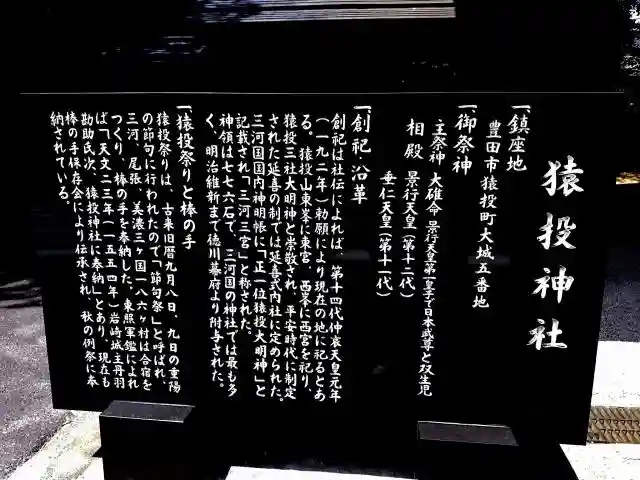 猿投神社
一、鎮座地
豊田市猿投町大城五番地
一、御祭神
主祭神 大碓命 景行天皇第一皇子で日本武尊と双生児
相殿 景行天皇(第十二代)
垂仁天皇(第十一代)
一、創祀・沿革
創祀は社伝によれば、第十四代仲哀天皇元年
(一九二年)勅願により現在の地に祀るとあ
る。猿投山東峯に東宮、西峯に西宮を祀り、
猿投三社大明神と崇敬され、平安時代に制定
された延喜の制では延喜式内社に定められた。
三河国国内神明帳に「正一位猿投大明神」と
記載され「三河三宮」と称された。
神領は七七六石で、三河国の神社では最も多
く、明治維新まで徳川幕府より附与された。
一、猿投祭りと棒の手
猿投祭りは、古来旧暦九月八日、九日の重陽
の節句に行われたので「節句祭」と呼ばれ、
三河、尾張、美濃三ヶ国一八六ヶ村は合宿を
つくり、棒の手を奉納した。東照軍鑑によれ
ば「天文二三年(一五五四年)岩崎城主丹羽
勘助氏次、猿投神社に奉納」とあり、現在も
棒の手保存会により伝承され、秋の例祭に奉
納されている。